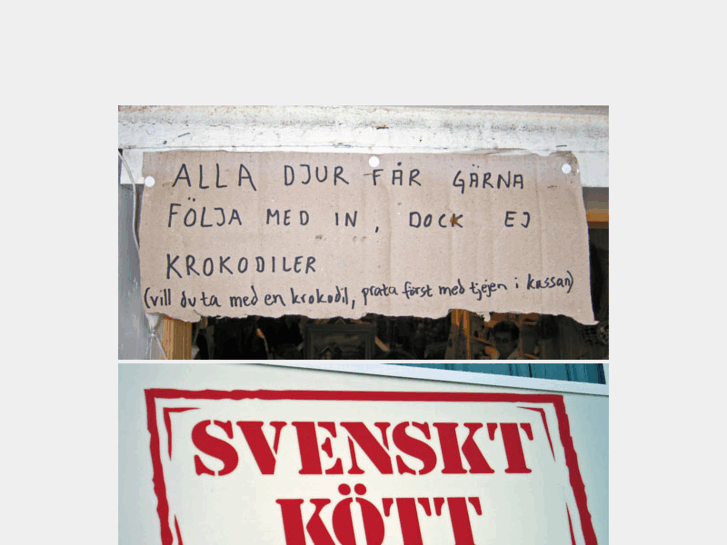 ALLA DJUR FÅR GÄRNA
FÖLJA MED IN, DOCK EJ
KROKODILER
(vill du ta med en krokodil, prata först med tjejen i kassan)
SVENSKT
KÖTT